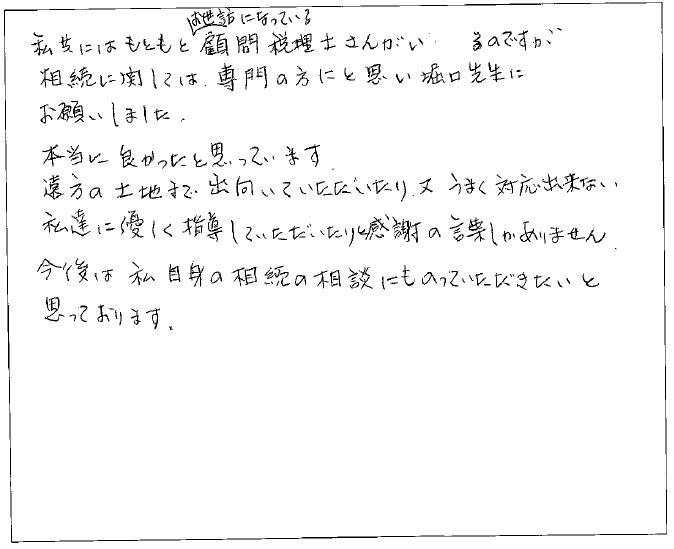 お世話になっている
私共にはもともと顧問税理士さんがい るのですが
相続に関しては、専門の方にと思い堀口先生に
お願いしました。
本当に良かったと思っています。
遠方の土地まで出向いていただいたり、又うまく対応出来ない
私達に優しく指導していただいたりと感謝の言葉しかありません。
今後は私自身の相続の相談にものっていただきたいと
思っております。